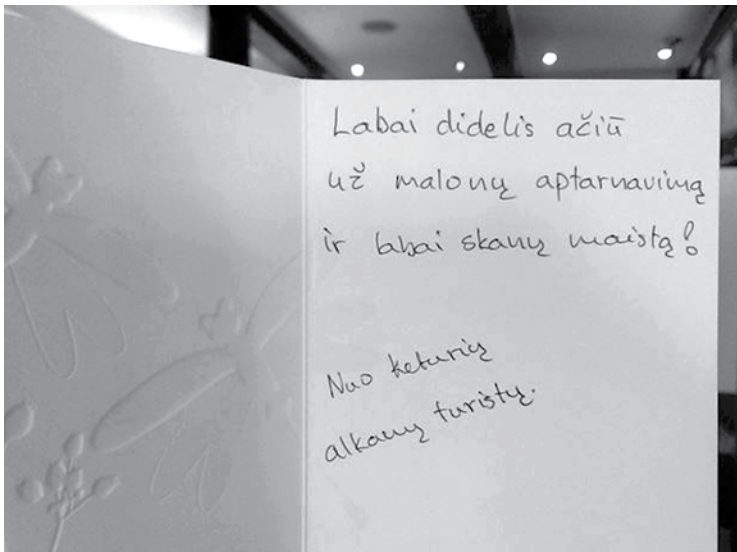 Labai didelis ačiū
už malonų aptarnavimą
ir labai skanų maistą!
Nuo keturių
alkanų turistų.